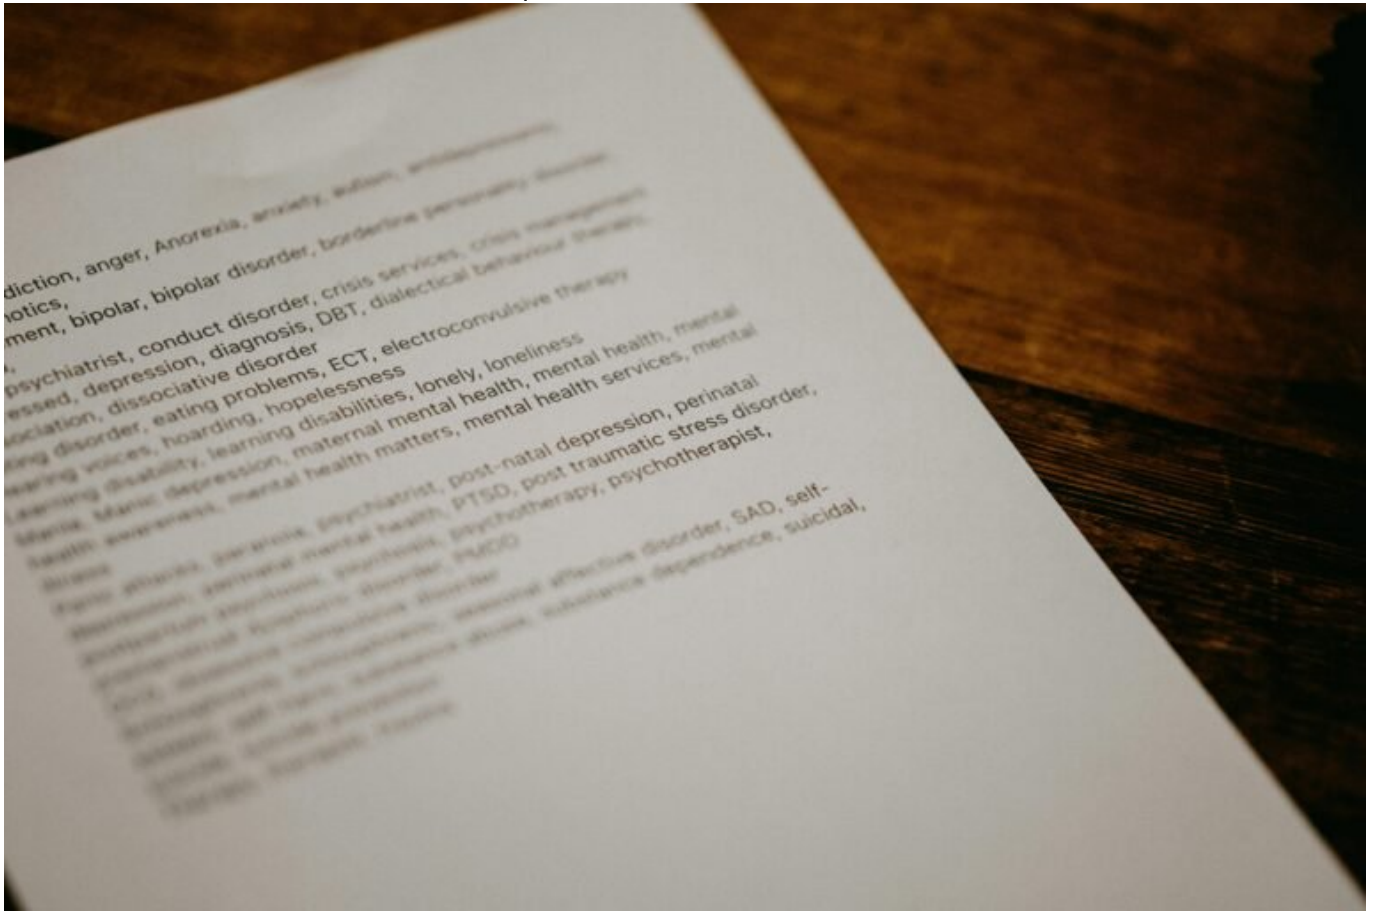 diction, anger, Anorexia, anxiety, autism, antidepressants,
notics,
ment, bipolar, bipolar disorder, borderline personality disorder
psychiatrist, conduct disorder, crisis services, crisis management
essed, depression, diagnosis, DBT, dialectical behaviour therapy,
sociation, dissociative disorder
ting disorder, eating problems, ECT, electroconvulsive therapy
earing voices, hoarding, hopelessness
Learning disability, learning disabilities, lonely, loneliness
Mania, Manic depression, maternal mental health, mental health, mental
health awareness, mental health matters, mental health services, mental
illness
Panic attacks, paranoia, psychiatrist, post-natal depression, perinatal
depression, perinatal mental health, PTSD, post traumatic stress disorder,
postpartum psychosis, psychosis, psychotherapy, psychotherapist,
disorder, PMDD
OCD, obsessive compulsive disorder
schizophrenia, seasonal affective disorder, SAD, self-
self harm, substance abuse, substance dependence, suicidal,
suicide